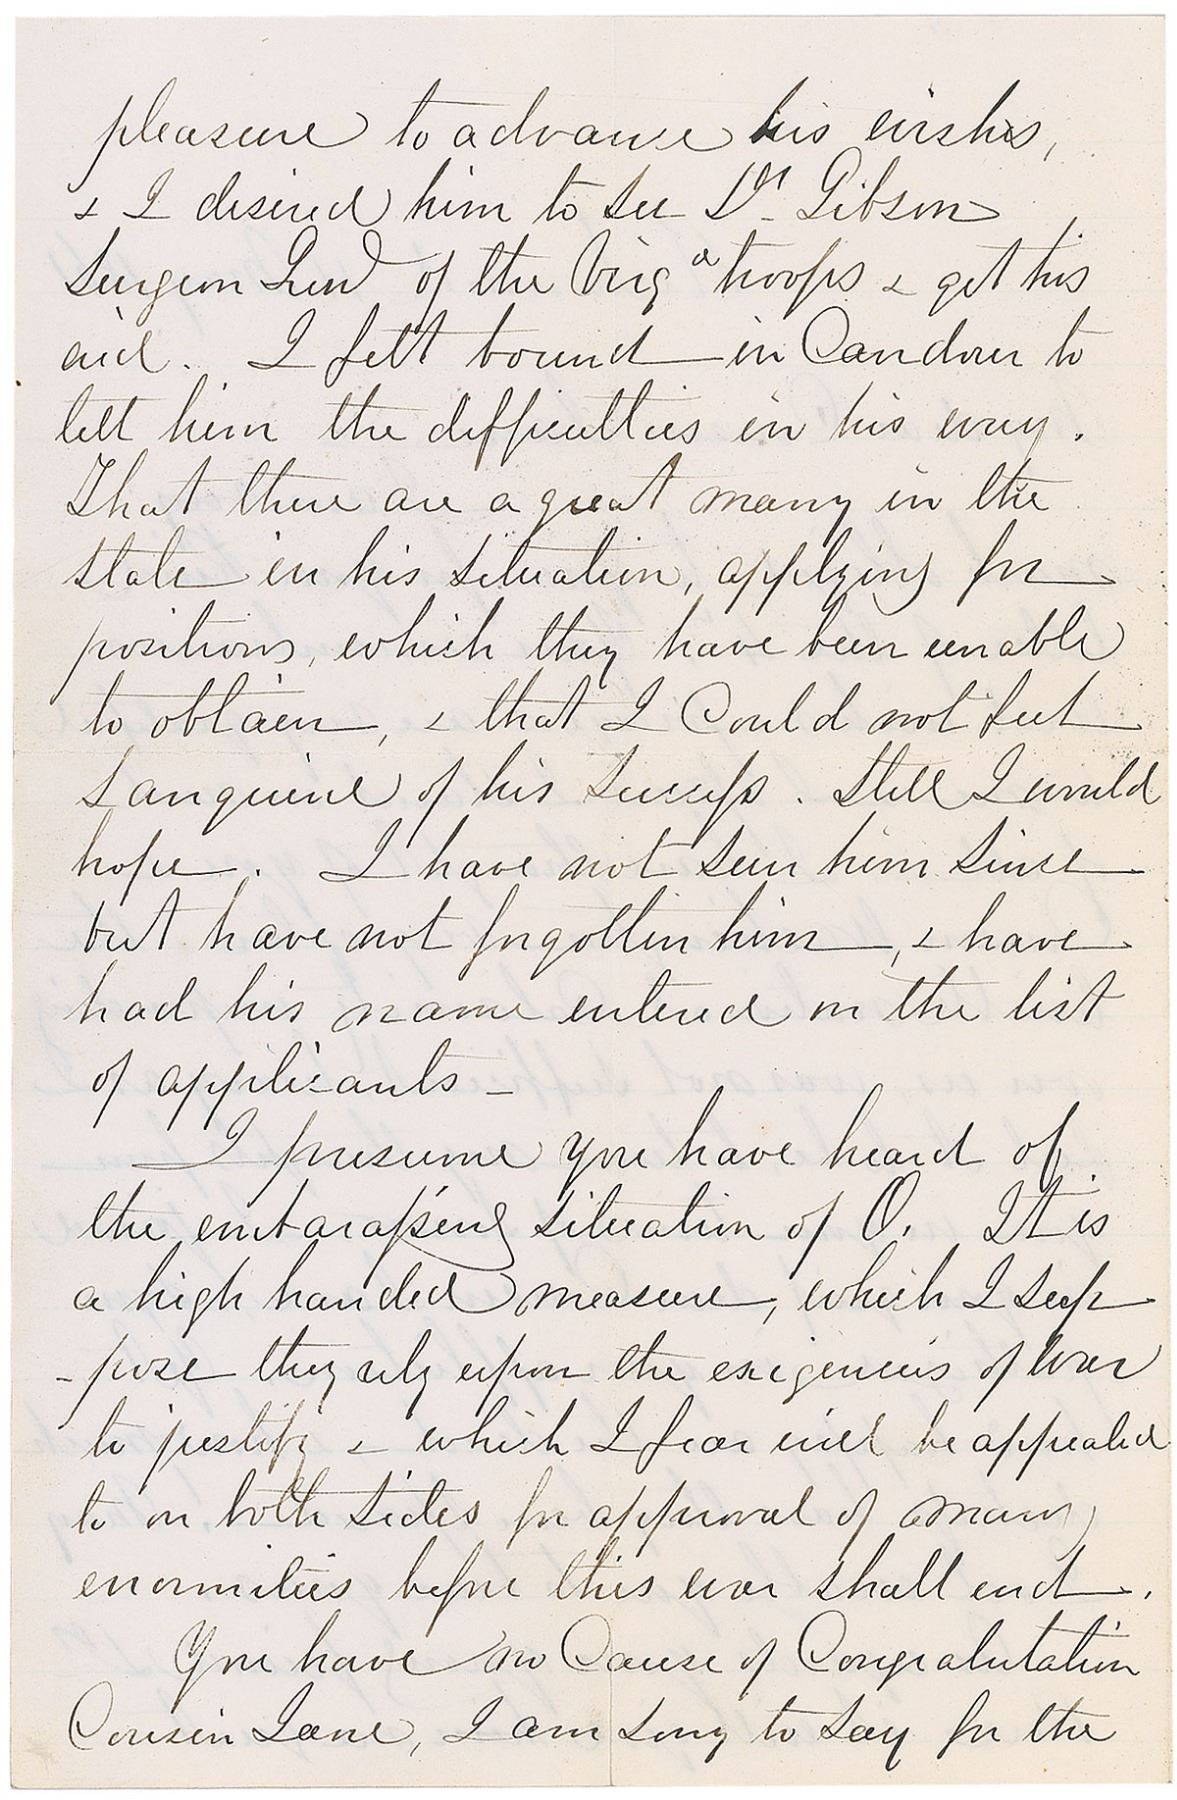 pleasure to advance his wishes,
& I desired him to see Dr. Gibson
Surgeon Genl of the Virga troops & get his
aid. I felt bound in Candour to
tell him the difficulties in his way.
That there are a great many in the
state in his situation, applying for
positions, which they have been unable
to obtain, & that I Could not feel
sanguine of his success. Still I would
hope. I have not seen him since
but have not forgotten him, & have
had his name entered on the list
of applicants -
I presume you have heard of
the embarassing situation of O. It is
a high handed measure, which I sup
-pose they rely upon the exigencies of war
to justify & which I fear will be appealed
to on both sides for approval of many
enormities before this war shall end.
You have no Cause of Congratulation
Cousin Jane, I am sorry to say for the